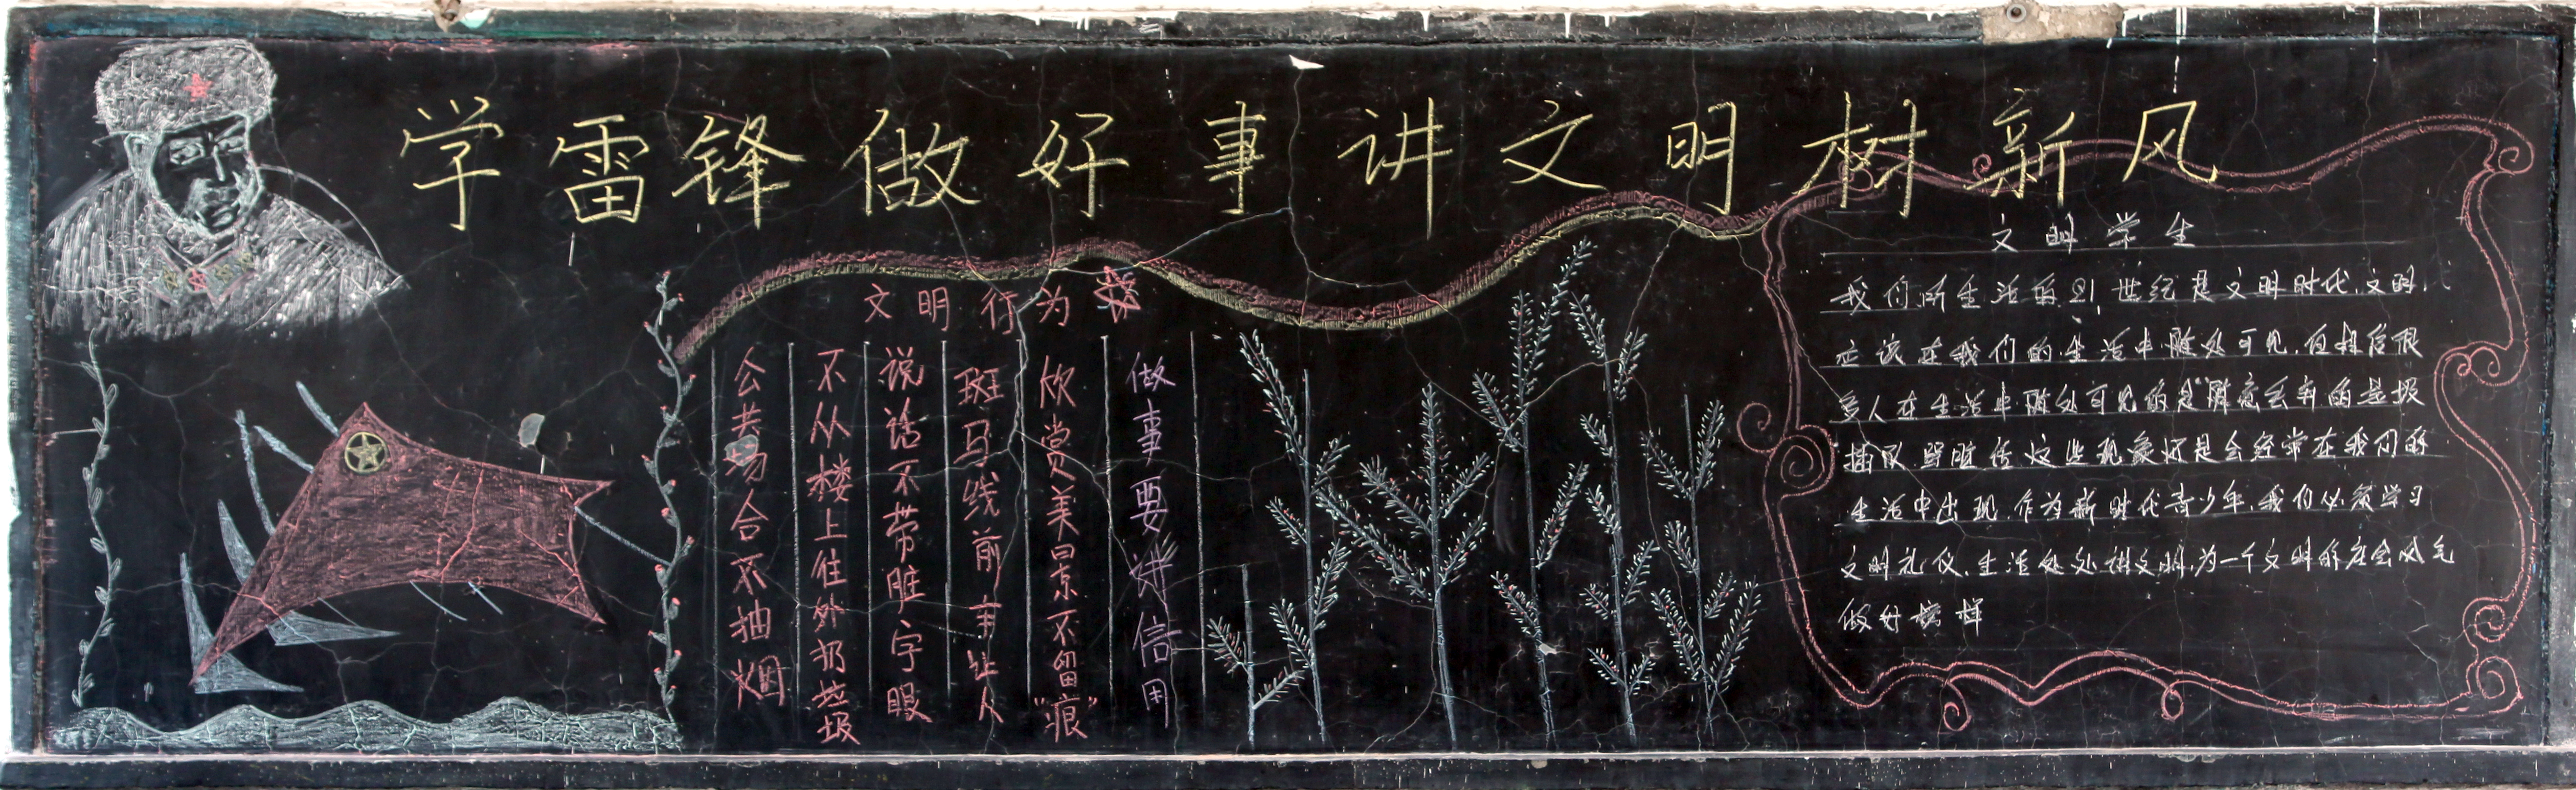 学雷锋做好事讲文明树新风
文明行为
公共场合不抽烟
不从楼上往外扔垃圾
说话不带脏字眼
斑马线前车让人
欣赏美景不留“痕”
做事要讲信用
文明学生
我们所生活的21世纪是文明时代,文明,
应该在我们的生活中随处可见,但很
多人在生活中随处可见的是“随意丢弃的垃圾
插队 骂脏话 这些现象还是会经常在我们的
生活中出现,作为新时代青少年,我们必须学习
文明礼仪,生活处处讲文明,为一个文明的社会风气
做好榜样